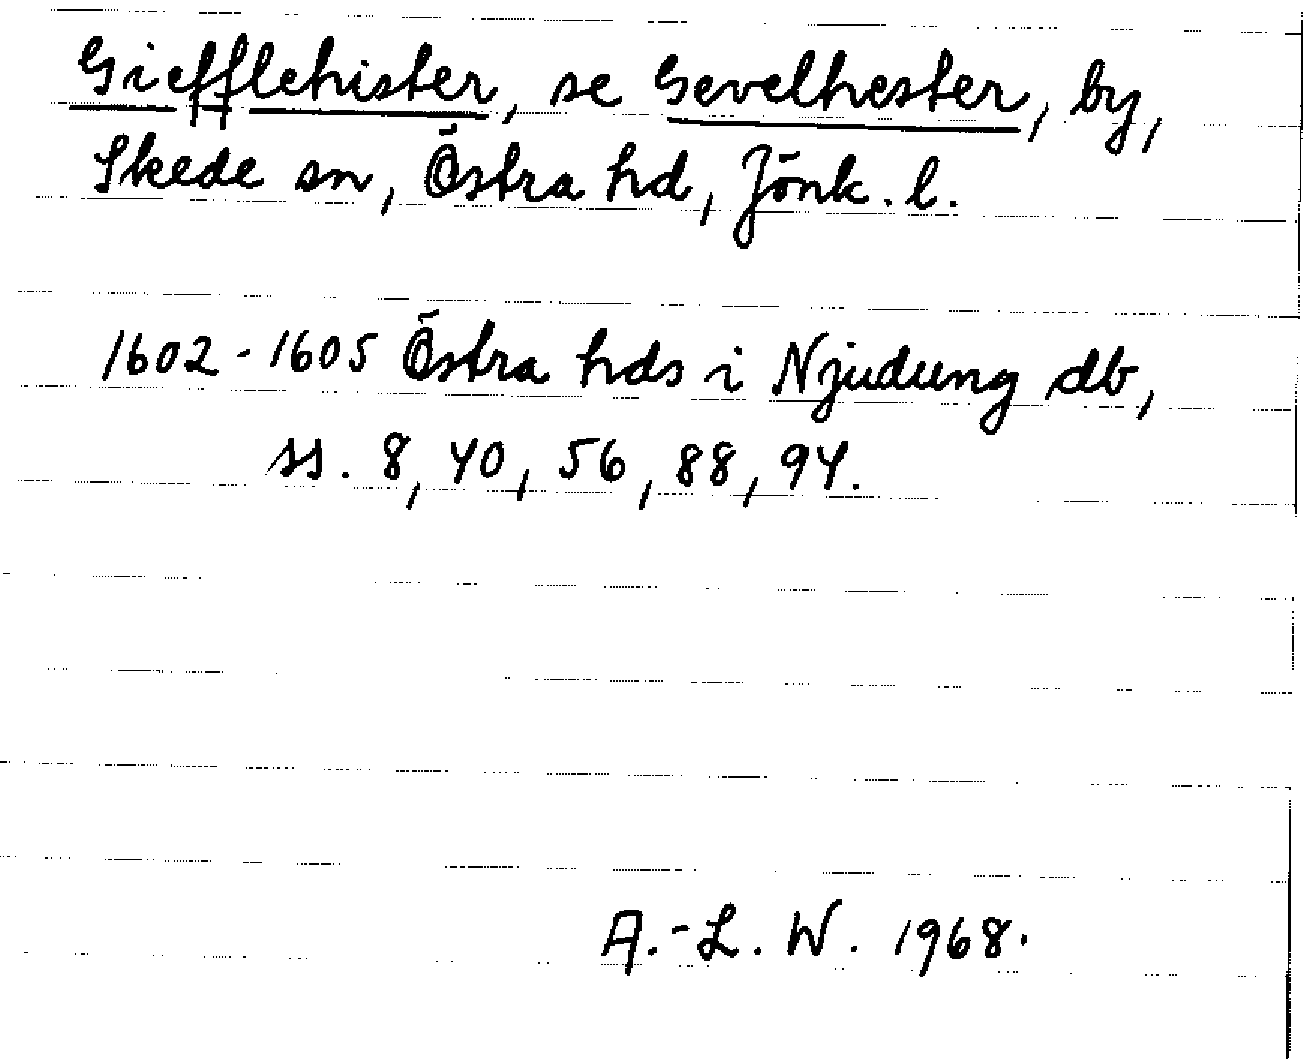 Giefflehister, se Gevelhester, by,
Skede sn, Östra hd, Jönk. l.
1602-1605 Östra hds i Njudung db,
ss. 8, 40, 56, 88, 94.
A.-L. W. 1968.